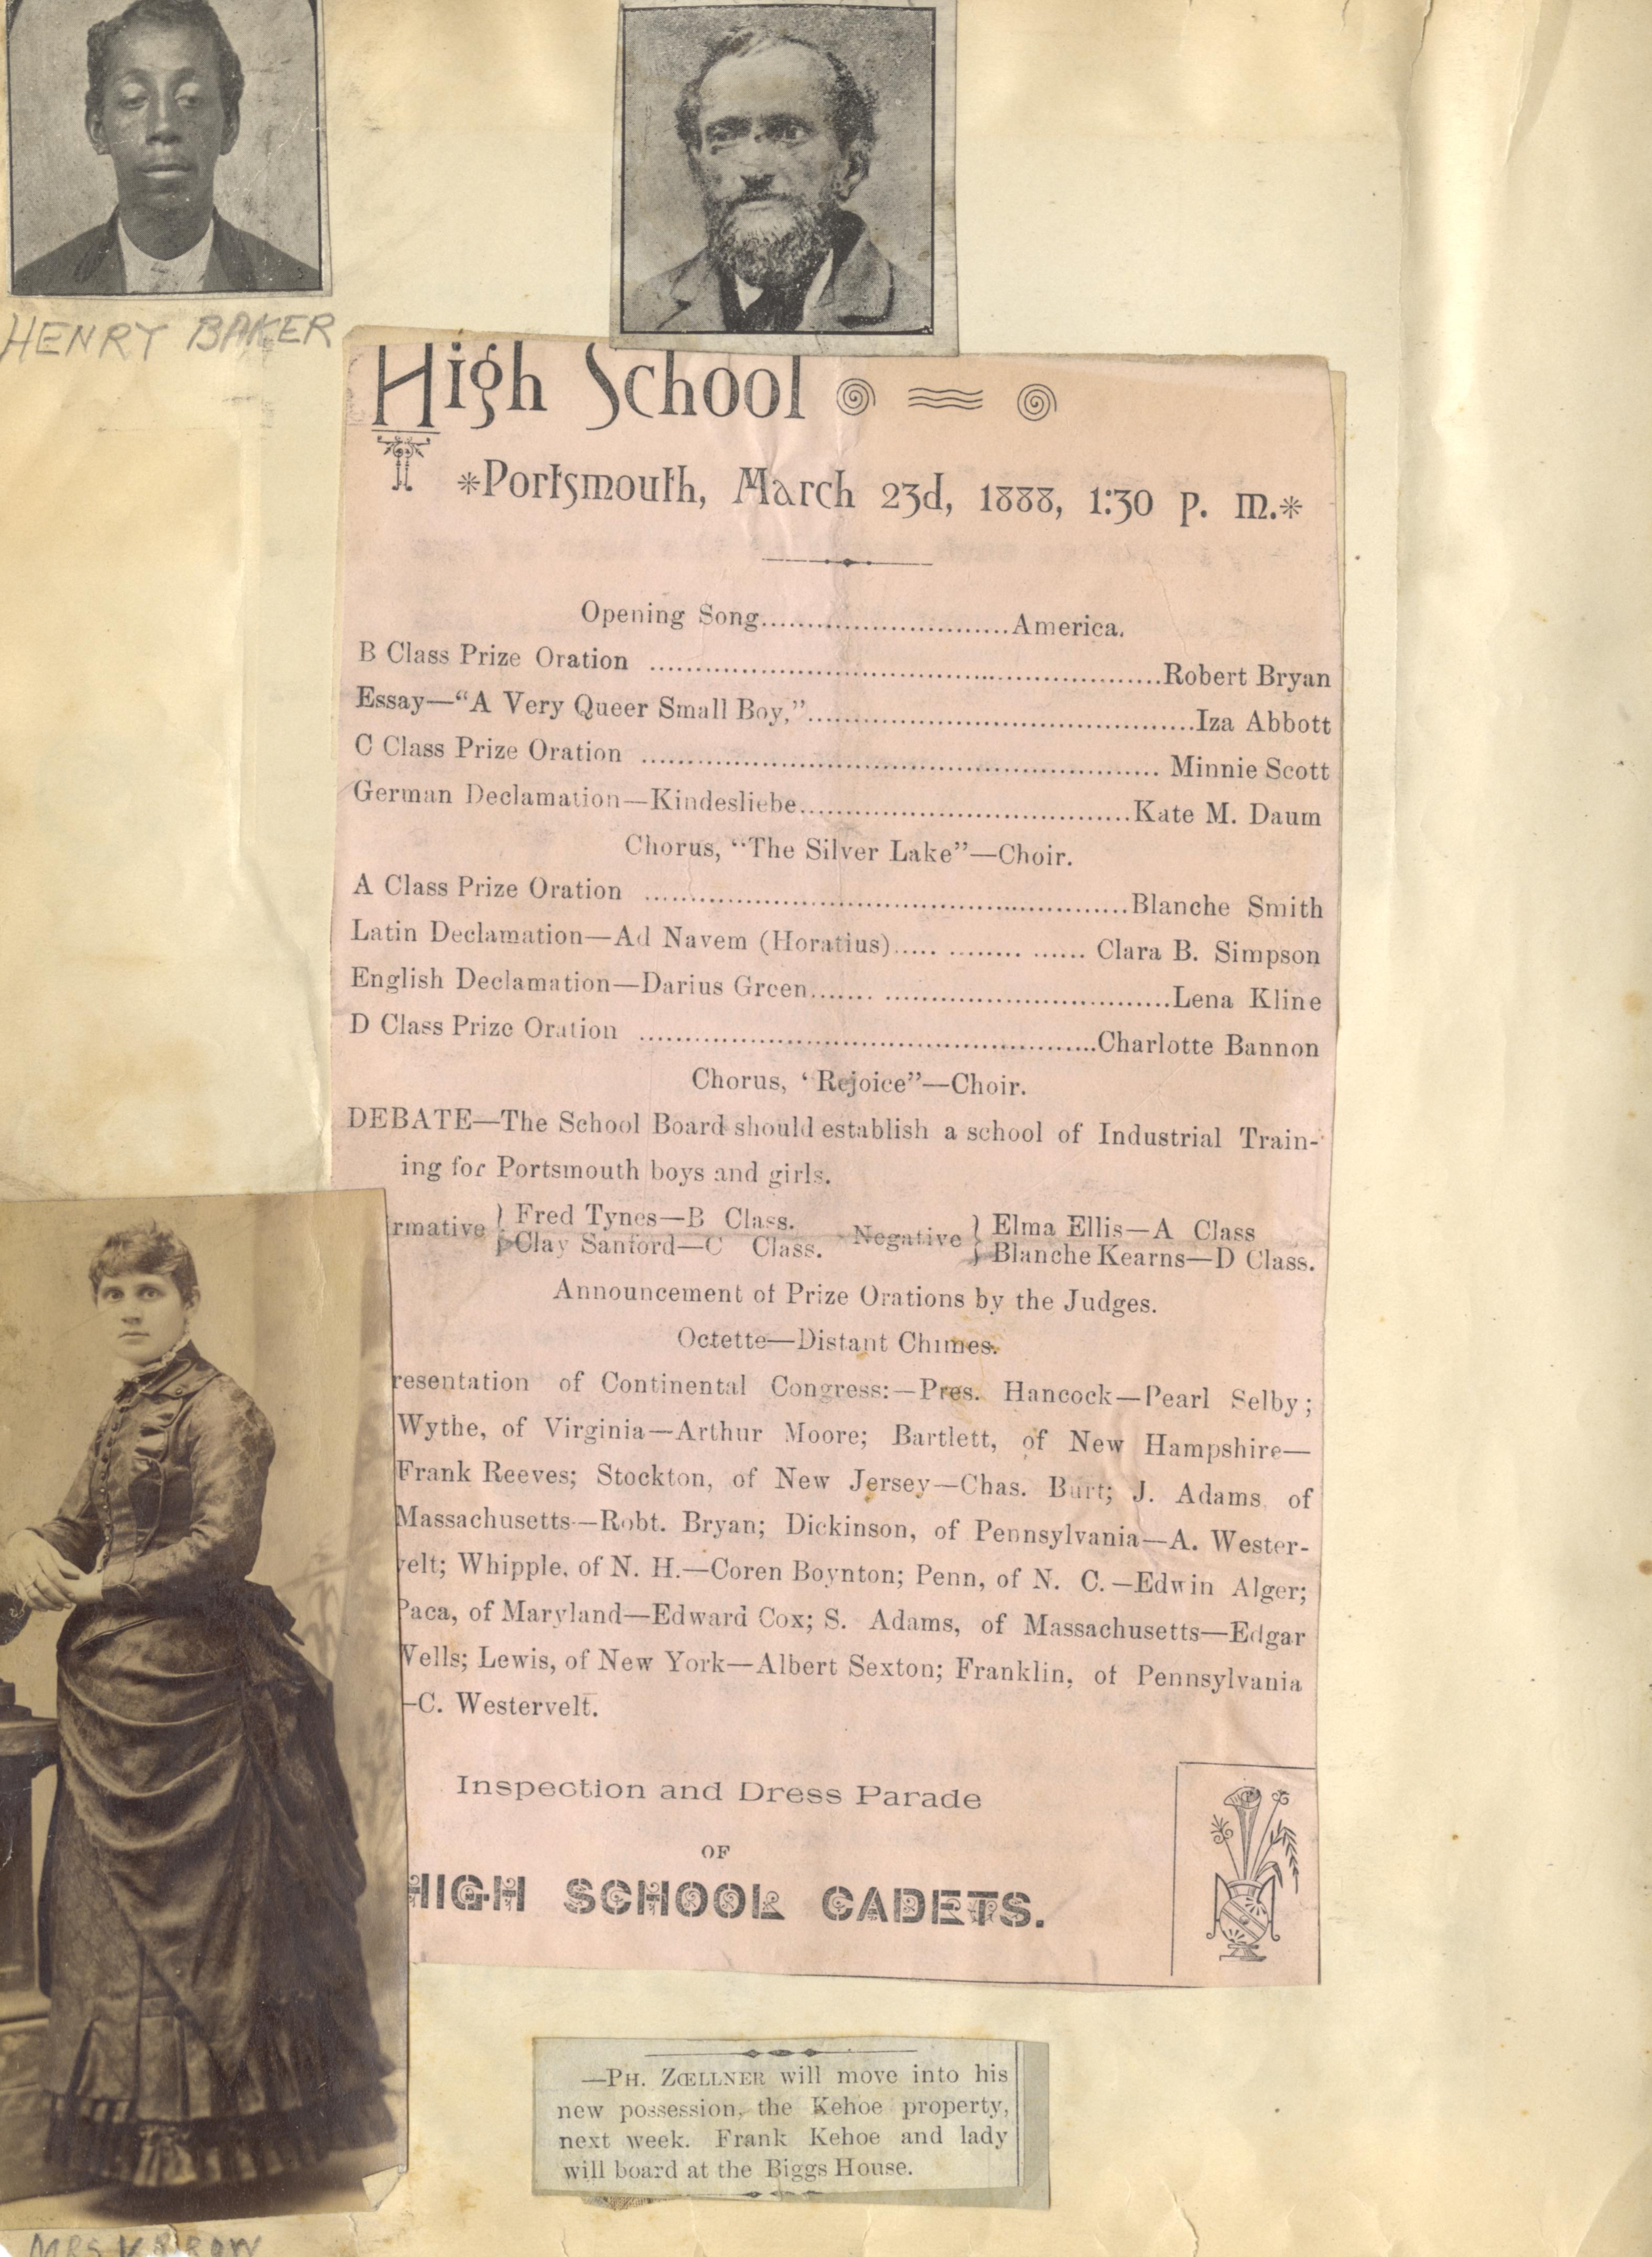 HENRY BAKER
High School
*Portsmouth, March 23d, 1888, 1:30 P. M.*
Opening Song...........................America.
B Class Prize Oration ........................................................Robert Bryan
Essay—“A Very Queer Small Boy,”...........................................Iza Abbott
C Class Prize Oration ......................................................... Minnie Scott
German Declamation—Kindesliebe....................................Kate M. Daum
Chorus, “The Silver Lake”—Choir.
A Class Prize Oration .....................................................Blanche Smith
Latin Declamation—Ad Navem (Horatius)..... ........ ...... Clara B. Simpson
English Declamation—Darius Green....... ................................Lena Kline
D Class Prize Oration ..................................................Charlotte Bannon
Chorus, ‘Rejoice”—Choir.
DEBATE—The School Board should establish a school of Industrial Train-
ing for Portsmouth boys and girls.
rmative } Fred Tynes—B Class. Negative } Elma Ellis—A Class
Clay Sanford—C Class. Blanche Kearns—D Class.
Announcement of Prize Orations by the Judges.
Octette—Distant Chimes.
resentation of Continental Congress:—Pres. Hancock—Pearl Selby;
Wythe, of Virginia—Arthur Moore; Bartlett, of New Hampshire—
Frank Reeves; Stockton, of New Jersey—Chas. Burt; J. Adams of
Massachusetts—Robt. Bryan; Dickinson, of Pennsylvania—A. Wester-
velt; Whipple, of N. H.—Coren Boynton; Penn, of N. C.—Edwin Alger;
Paca, of Maryland—Edward Cox; S. Adams, of Massachusetts—Edgar
Wells; Lewis, of New York—Albert Sexton; Franklin, of Pennsylvania
—C. Westervelt.
Inspection and Dress Parade
OF
HIGH SCHOOL CADETS.
—PH. ZŒLLNER will move into his
new possession, the Kehoe property,
next week. Frank Kehoe and lady
will board at the Biggs House.
MRS